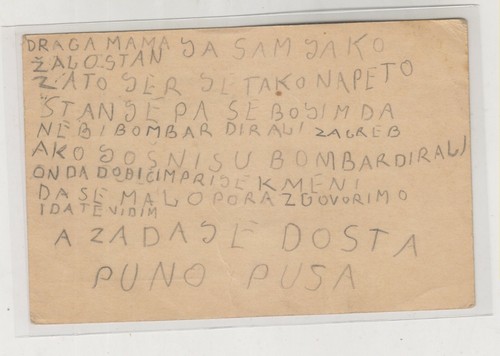 DRAGA MAMA JA SAM JAKO
ŽALOSTAN
ZATO JER JE TAKO NAPETO
STANJE PA SE BOJIM DA
NEBI BOMBARDIRALI ZAGREB
AKO JOŠ NISU BOMBARDIRALI
ONDA DOĐI ĆIM PRIJE K MENI
DA SE MALO PORAZGOVORIMO
I DA TE VIDIM
A ZADAJE DOSTA
PUNO PUSA